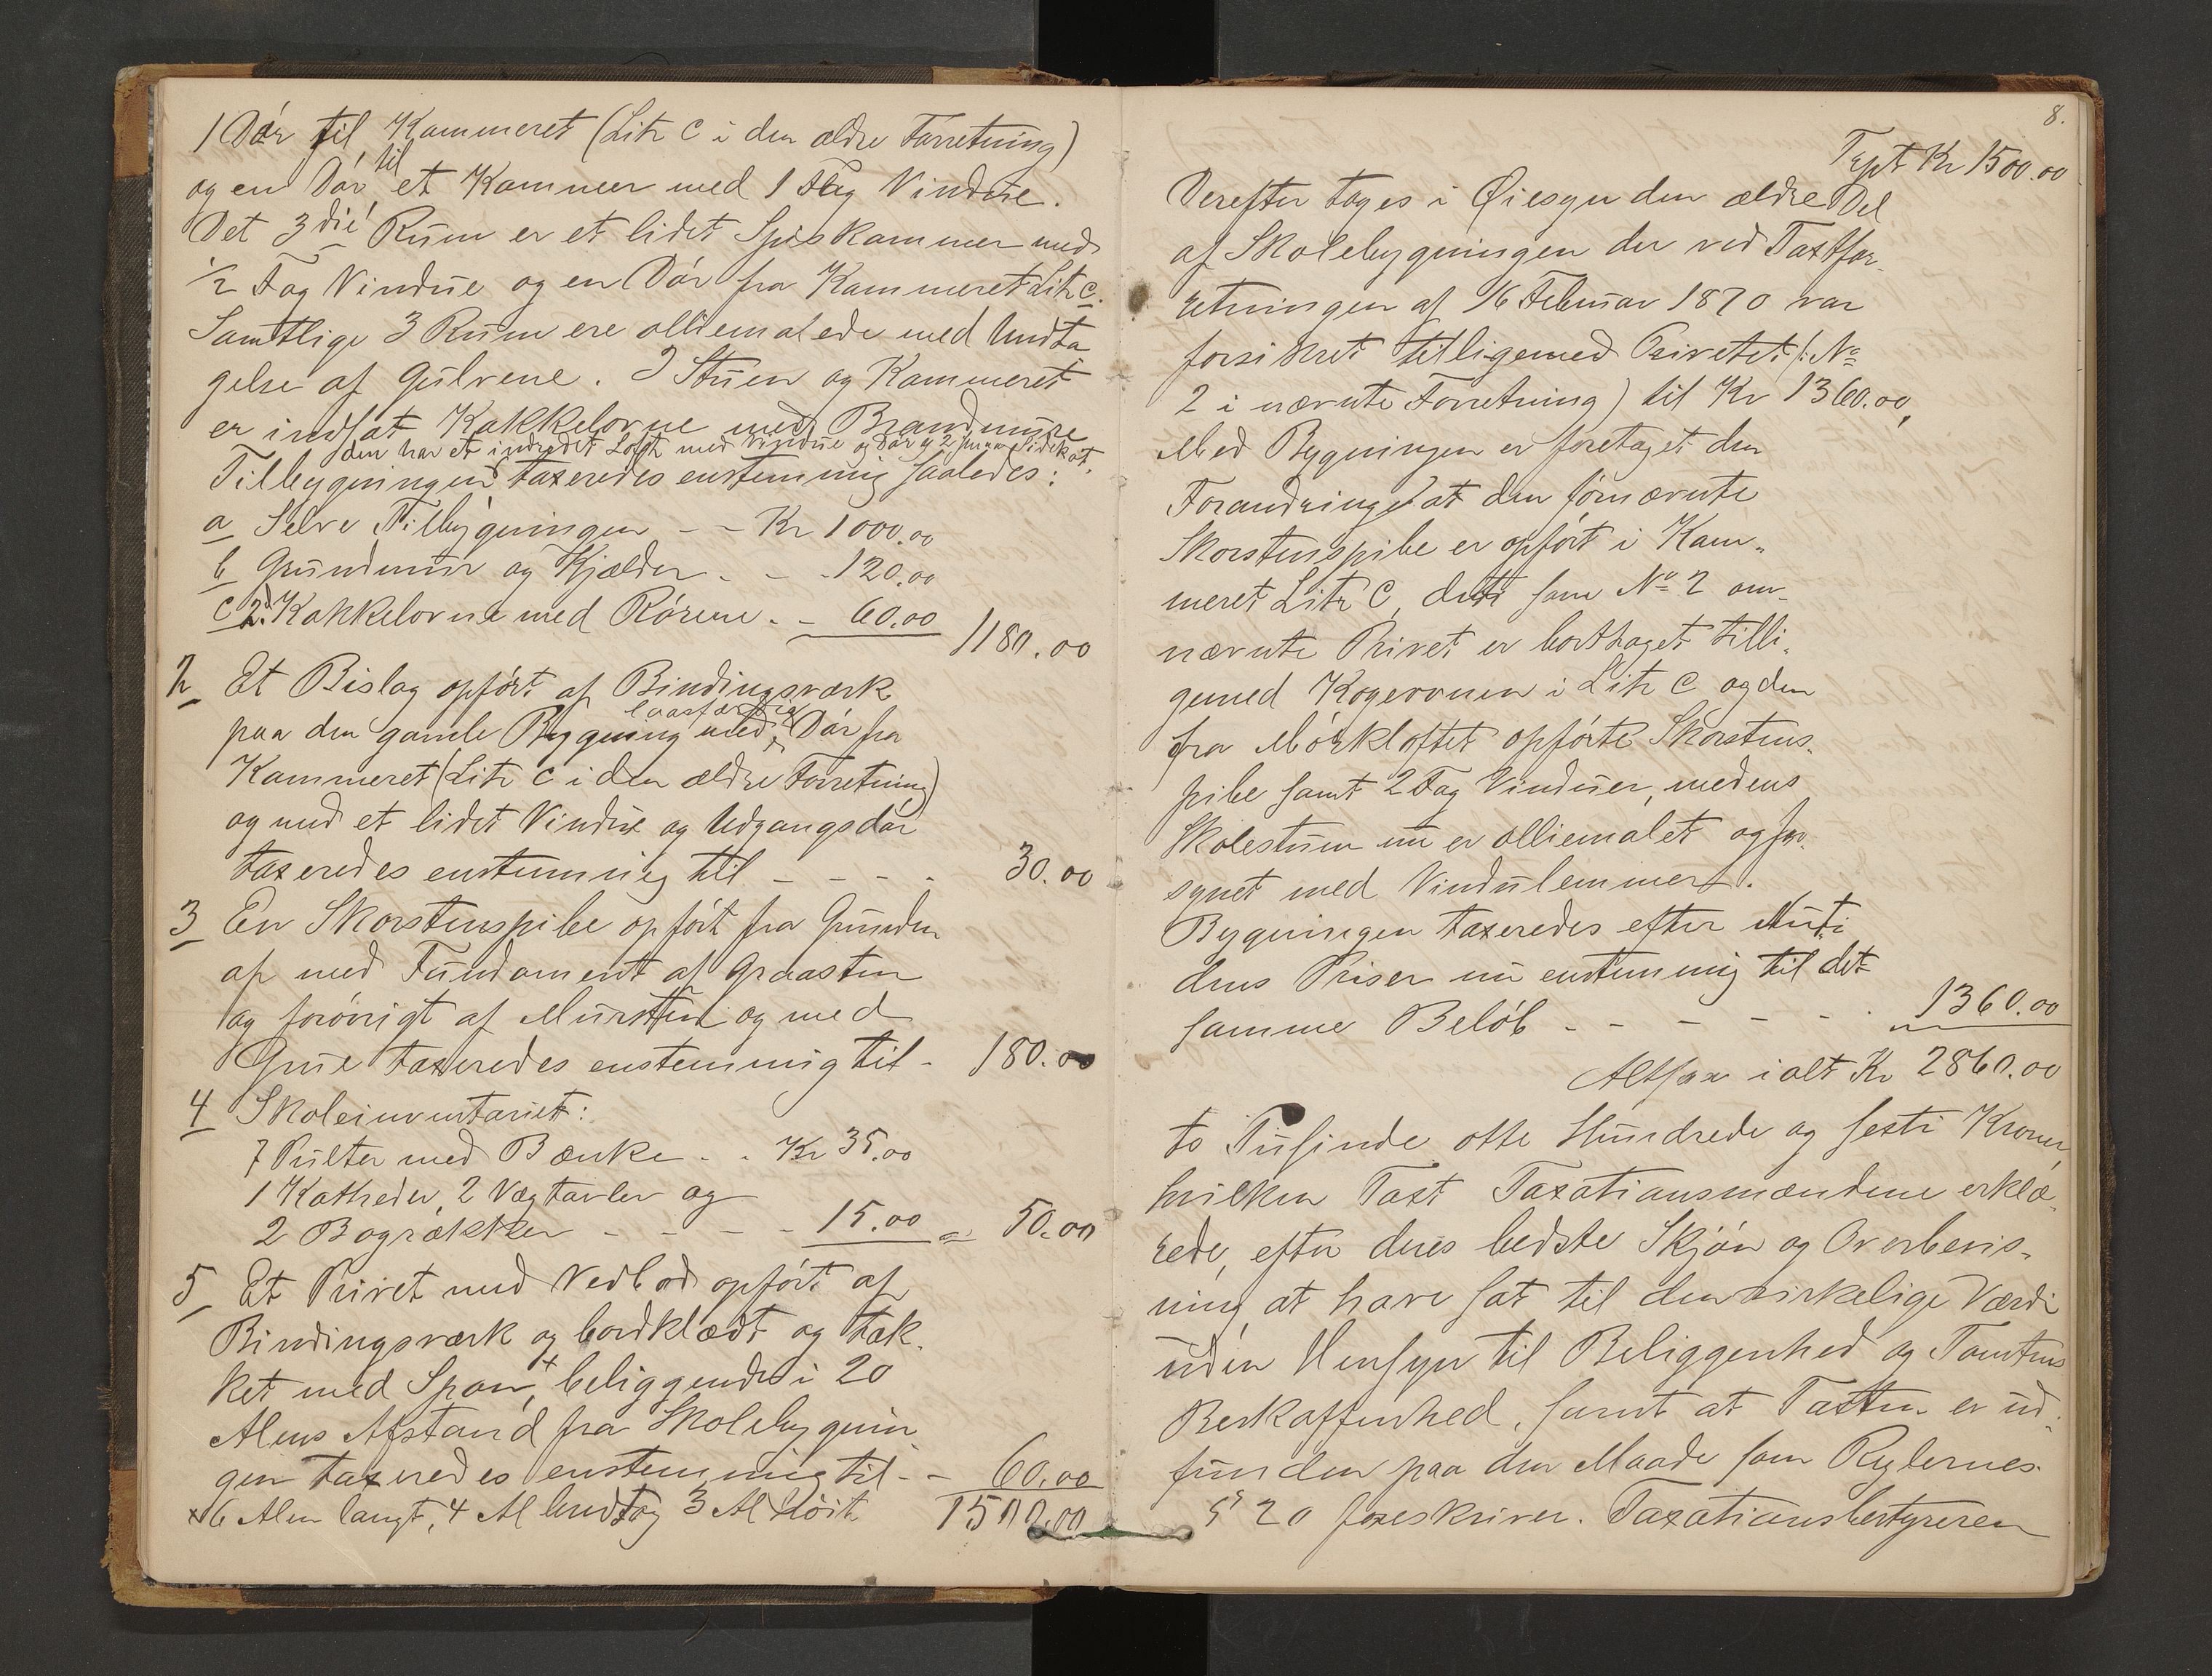 1 Dør til Kammeret (Litr C i den ældre Forretning)
og en Dør til et Kammer med 1 Fag Vindue.
Det 3die Rum er et lidet Spiskammer med
1/2 Fag Vindue og en Dør fra Kammeret Litr C.
Samtlige 3 Rum ere olliemalede med Undta
gelse af Gulvene. I Stuen og Kammeret
er indsat Kakkelovne med Brandmure
den har et indredet Loft med Vindue og Dør
Tilbygningen taxeredes enstemmig saaledes:
a Selve Tilbygningen - - Kr 1000.00
b Grundmur og Kjælder - - - 120.00
c 2d. Kakkelovne med Rørene - - 60.00 1180.00
2 Et Bislag opført af Bindingsværk
paa den gamle Bygning med laasfærdig Dør fra
Kammeret (Litr C i den ældre Forretning)
og med et lidet Vindue og Udgangsdør
taxeredes enstemmig til - - - - 30.00
3 En Skorstenspibe opført fra Grunden
af med Fundament af Graasten
og forøvrigt af Mursten og med
Grue taxeredes enstemmig til - 180.00
4 Skoleinventariet:
7 Pulter med Bænke - - Kr 35.00
1 Katheder, 2 Vægtavler og
2 Bogrækker - - - - 15.00 = 50.00
5 Et Privet med Vedbod opført af
Bindingsværk og bordklædt og tæk-
ket med Spon, x beliggende i 20
Alens Afstand fra Skolebygnin
gen taxeredes enstemmig til - - 60.00
x 6 Alen langt, 4 Al bredt og 3 Al høit 1500.00
8.
Trpt Kr 1500.00
Derefter toges i Øiesyn den ældre Del
af Skolebygningen der ved Taxtfor-
retningen af 16 Februar 1870 var
forsikret tilligemed Privetet (: No
2 i nævnte Forretning) til Kr 1360.00,
Med Bygningen er foretaget den
Forandring at den førnævnte
Skorstenspibe er opført i Kam-
meret Litr C, det som No 2 om-
nævnte Privet er borttaget tilli-
gemed Kogeovnen i Litr C og den
fra Mørkloftet opførte Skorstens-
pibe samt 2 Fag Vinduer, medens
Skolestuen nu er olliemalet og for-
synet med Vindulemmer.
Bygningen taxeredes efter Nuti-
dens Priser nu enstemmig til det
samme Beløb - - - - - - 1360.00
Altsaa ialt Kr 2860.00
to Tusinde otte Hundrede og sexti Kroner,
hvilken Taxt Taxationsmændene erklæ-
rede, efter deres bedste Skjøn og Overbevis-
ning at have sat til den virkelige Værdi
uden Hensyn til Beliggenhed og Tomtens
Beskaffenhed, samt at Taxten er ud-
funden paa den Maade som Reglernes
§ 20 foreskriver. Taxationsbestyreren